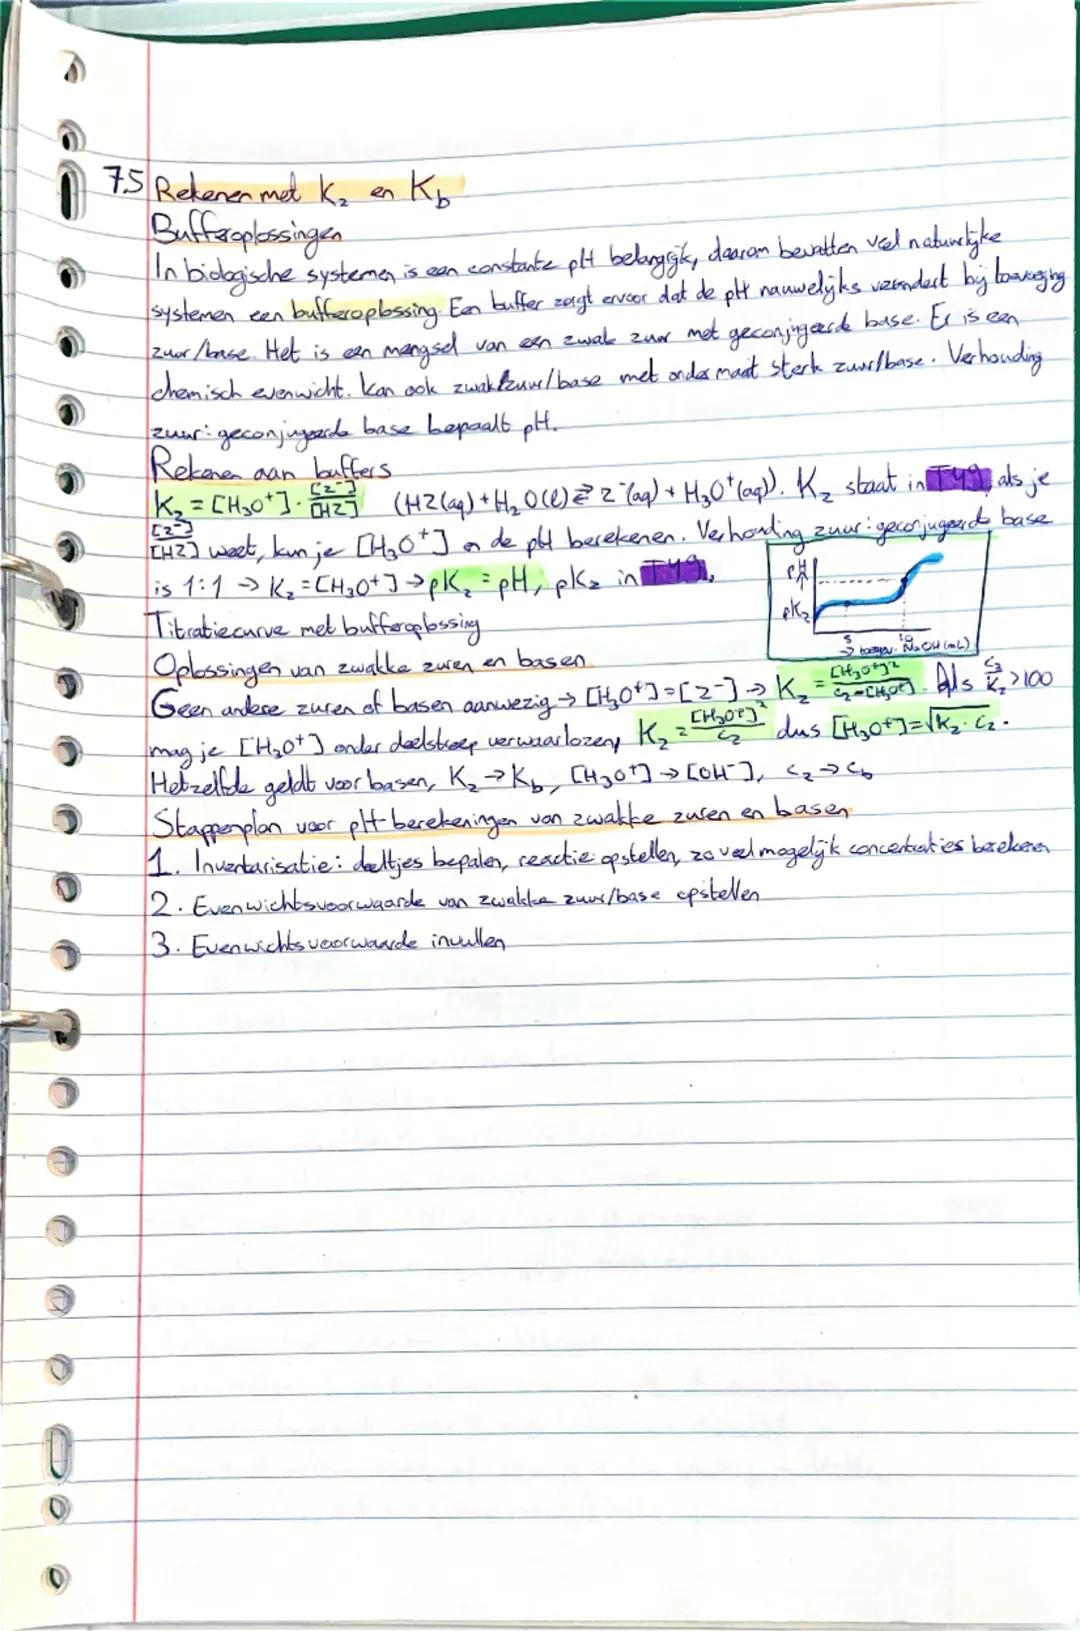 7.5 Rekenen met Kz en Kb
Bufferoplossingen
In biologische systemen is een constante pH belangrijk, daarom bevatten veel natuurlijke
systemen een bufferoplossing. Een buffer zorgt ervoor dat de pH nauwelijks verandert bij toevoeging
zuur/base. Het is een mengsel van een zwak zuur met geconjugeerde base. Er is een
chemisch evenwicht. Kan ook zwak zuur/base met ondermaat sterk zuur/base. Verhouding
zuur:geconjugeerde base bepaalt pH.
Rekenen aan buffers
Kz = [H₃O⁺] · [Z⁻]/[HZ] (HZ(aq) + H₂O(l) ⇄ Z⁻(aq) + H₃O⁺(aq)). Kz staat in T49, als je
[Z⁻]/[HZ] weet, kun je [H₃O⁺] en de pH berekenen. Verhouding zuur:geconjugeerde base
is 1:1 → Kz = [H₃O⁺] → pKz = pH, pKz in T49.
pH
pKz
5 10
→ toegev. NaOH (mL)
Titratiecurve met bufferoplossing
Oplossingen van zwakke zuren en basen
Geen andere zuren of basen aanwezig → [H₃O⁺] = [Z⁻] → Kz = [H₃O⁺]²/cz-[H₃O⁺]. Als cz/Kz > 100
mag je [H₃O⁺] onder deelstreep verwaarlozen, Kz = [H₃O⁺]²/cz dus [H₃O⁺] = √Kz · cz.
Hetzelfde geldt voor basen, Kz → Kb, [H₃O⁺] → [OH⁻], cz → cb
Stappenplan voor pH-berekeningen van zwakke zuren en basen
1. Inventarisatie: deeltjes bepalen, reactie opstellen, zo veel mogelijk concentraties berekenen
2. Evenwichtsvoorwaarde van zwakke zuur/base opstellen
3. Evenwichtsvoorwaarde invullen